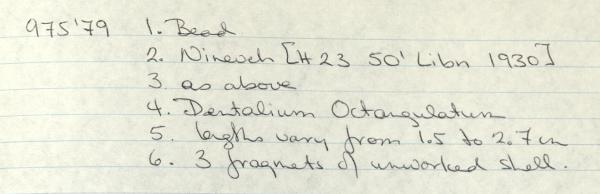 975'79 1. Bead
2. Nineveh [H 23 50' Libn 1930]
3. as above
4. Dentalium Octangulatum
5. lagths vary from 1.5 to 2.7 cm
6. 3 fragmets of unworked shell.